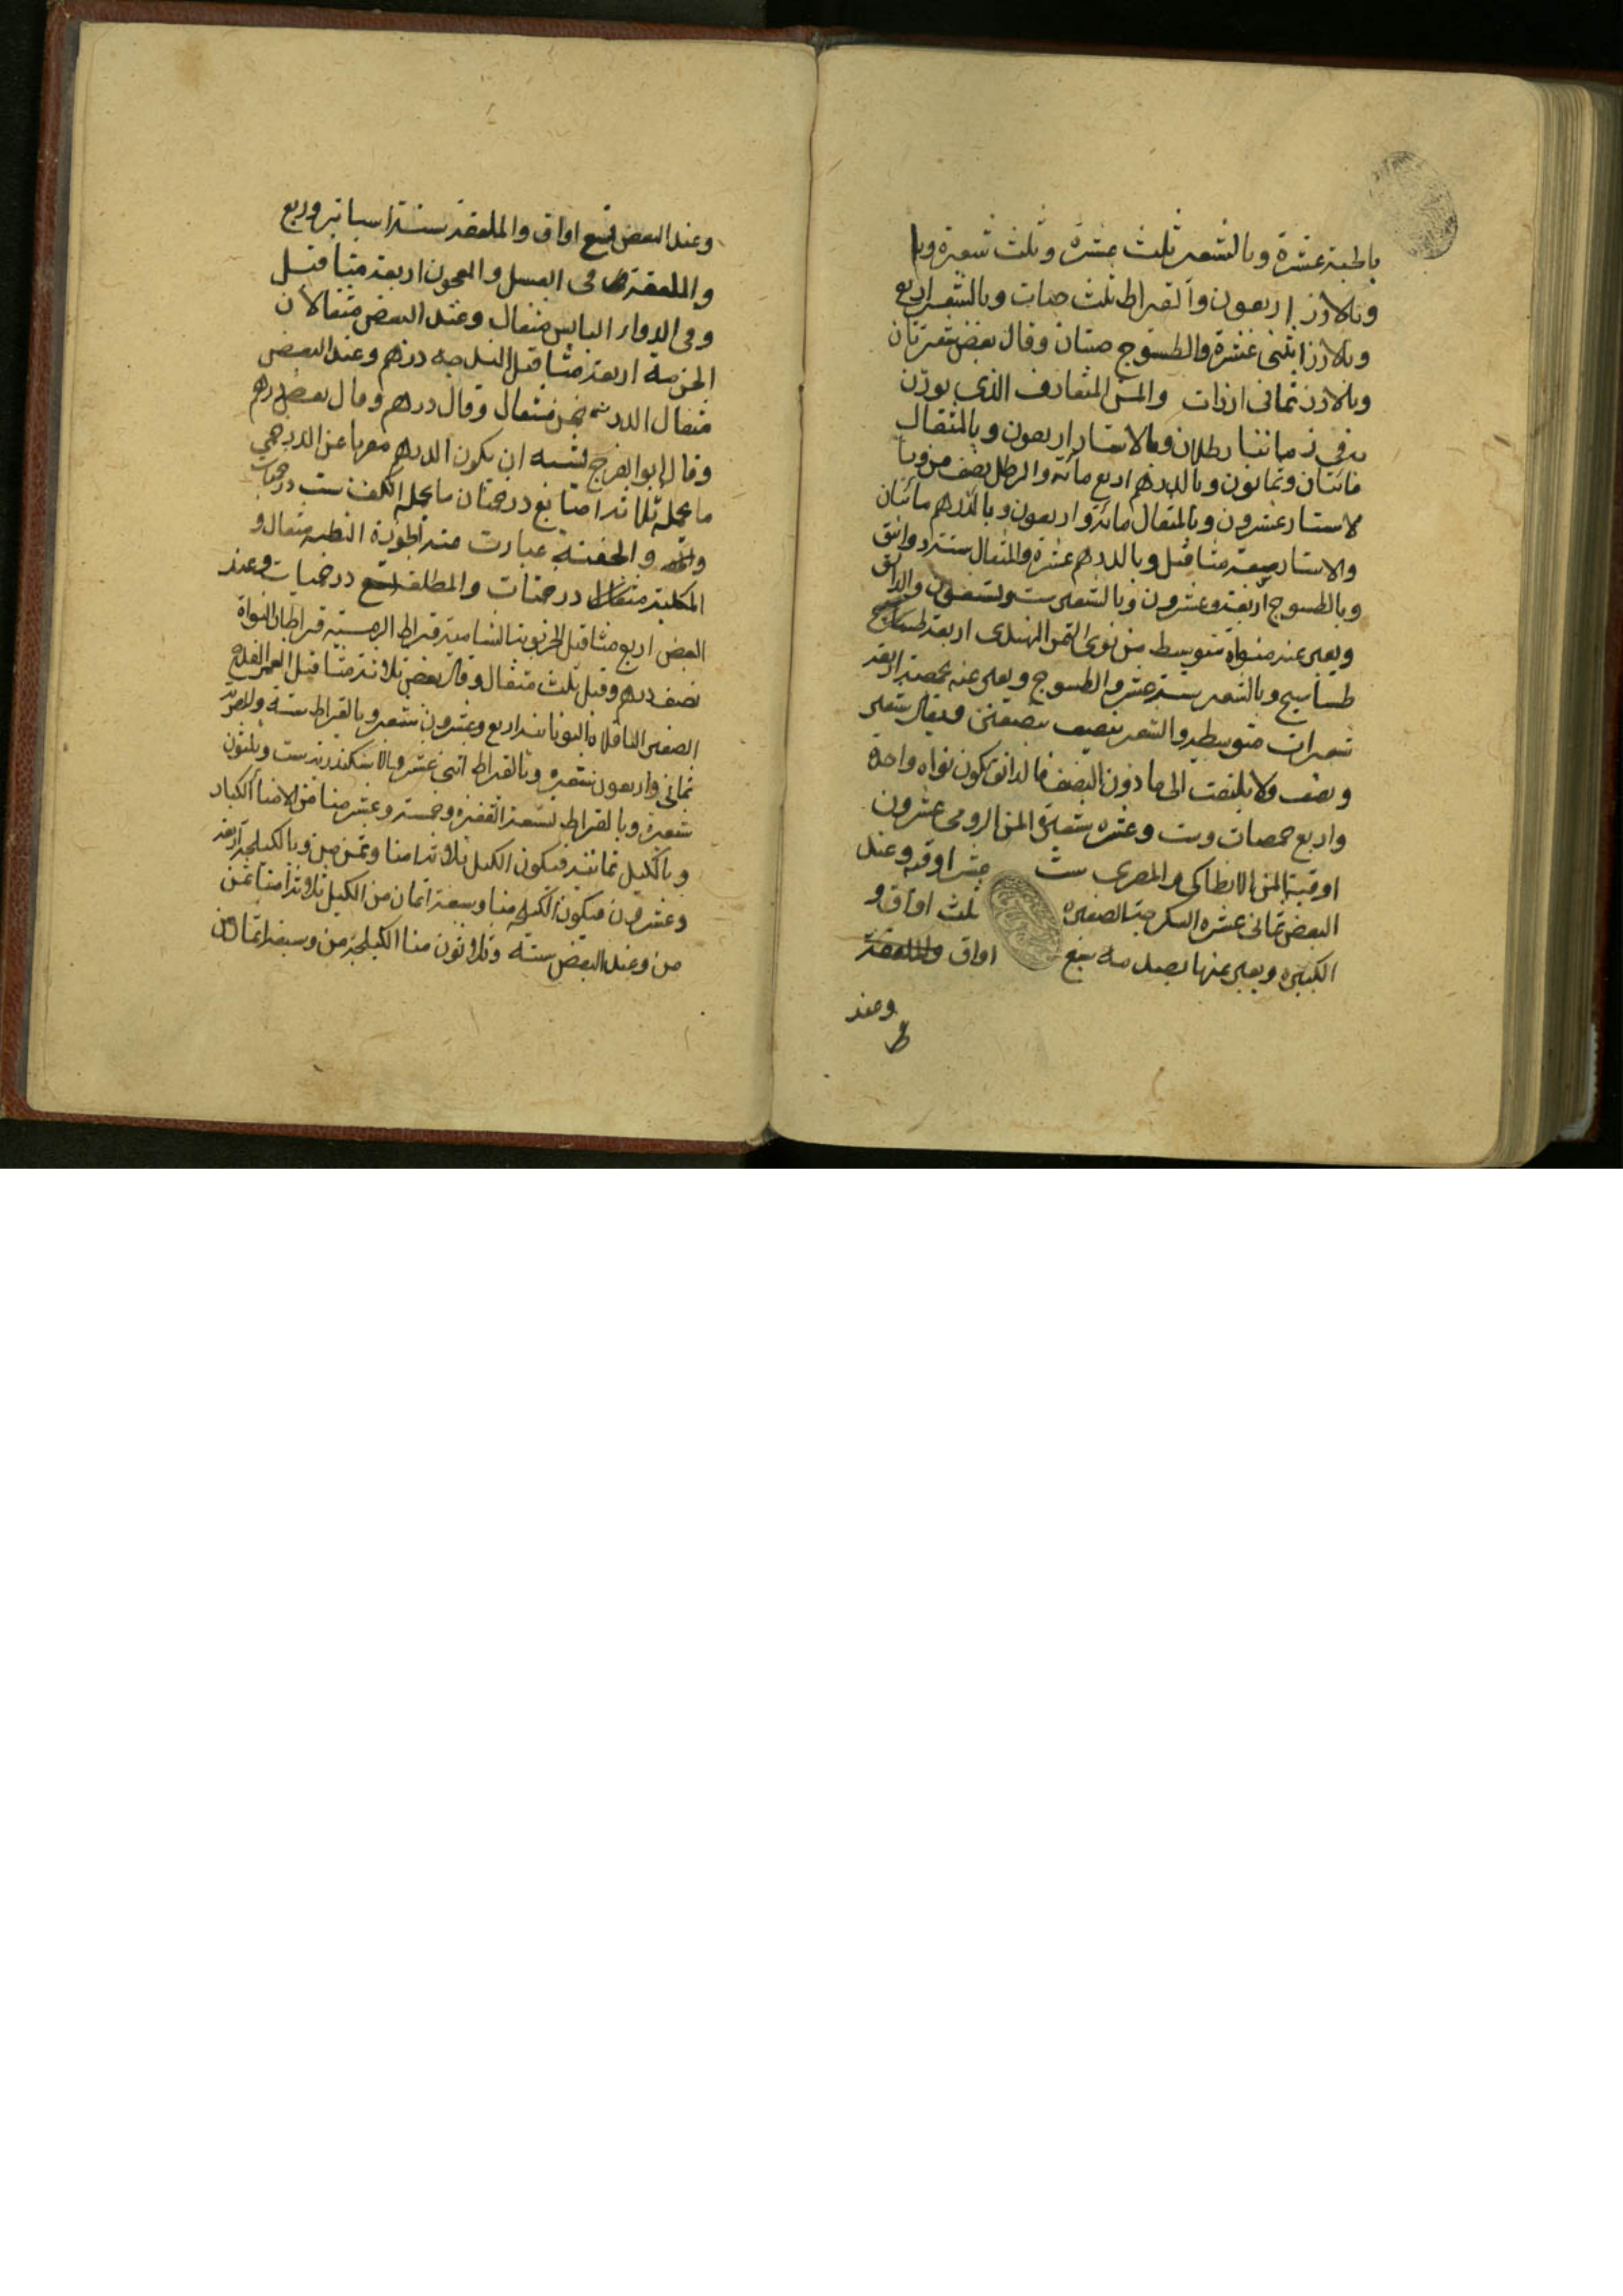 بالحبة عشرة وبالشعير ثلث عشرة وثلث شعيرة وبا
وبالارز اربعون والقيراط ثلث حبات وبالشعير اربع
وبالارز اثنى عشرة والطسوج حبتان وقال بعض شعيرتان
وبالارز ثمانى ارزات والمن المتعارف الذى يوزن
به فى زماننا رطلان وبالاستار اربعون وبالمثقال
مائتان وثمانون وبالدرهم اربع مائة والرطل نصف من وبا
لاستار عشرون وبالمثقال مائة واربعون وبالدرهم مائتان
والاستار سبعة مثاقيل وبالدرهم عشرة والمثقال ستة دوانق
وبالطسوج اربعة وعشرون وبالشعير ست وتسعون والدانق
ويعبر عنه بنواة متوسط من نوى التمر الهندى اربعة طساسيج
طساسيج وبالشعير ستة عشر والطسوج ويعبر عنه بحمصة اربعة
شعيرات متوسطة والشعير ينصف بنصفين فيقال شعير
ونصف ولا يلتفت الى ما دون النصف فالدانق يكون نواه واحدة
واربع حمصات وست وعشره شعيرة المن الرومى عشرون
اوقية المن الانطاكى والمصرى ست عشر اوقيه وعند
البعض ثمانى عشره السكرجة الصغيره ثلث اواق و
الكبيره ويعبر عنها بصدفه سبع اواق والملعقة
وعند
وعند البعض تسع اواق والملعقة ستة اساتير وربع
والملعقة فى العسل والمعجون اربعة مثاقيل
وفى الادواء اليابس مثقال وعند البعض مثقالان
اربعة مثاقيل درهم وعند البعض
مثقال ثمن مثقال وقال درهم وقال بعض درهم
وقال ابو الفرج يشبه ان يكون الدرهم معربا عن الدرخمى
ما يحمله ثلاثة اصابع درخمتان ما يحمله الكف ست درخميات
والحفنة عبارت مثقال و
درخمتات والمطلقة تسع درخميات وعند
البعض اربع مثاقيل الخرنوبة الشامية قيراط قيراطان النواة
نصف درهم وقيل ثلث مثقال وقال بعض ثلاثة مثاقيل
الصغير الباقلاه اليونانية اربع وعشرون شعير وبالقيراط ستة والمصرية
ثمانى واربعون شعيره وبالقيراط اثنى عشر والاسكندرية ست وثلثون
شعيرة وبالقراط تسعة القفيز وخمسة وعشر منا من الامنا الكبار
وبالكيل ثمانية فيكون الكيل ثلاثة امنا وثمن من وبالكيلجة اربعة
وعشرون فيكون منا وسبعة اثمان من الكيل ثلاثة امنا ثمن
من وعند البعض ستة وثلاثون منا الكيلجة من وسبعة اثمان من